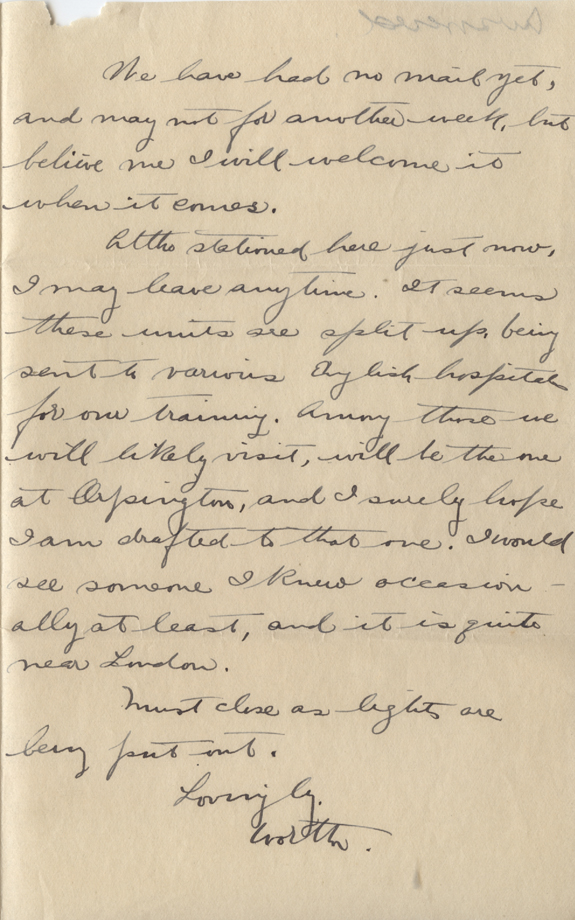 Answered
We have had no mail yet,
and may not for another week, but
believe me I will welcome it
when it comes.
Altho stationed here just now,
I may leave anytime. It seems
these units are split up, being
sent to various English hospitals
for our training. Among those we
will likely visit, will be the one
at Orpington, and I surely hope
I am drafted to that one. I would
see someone I knew occasion-
ally at least, and it is quite
near London.
Must close as lights are
being put out.
Lovingly,
Worth.